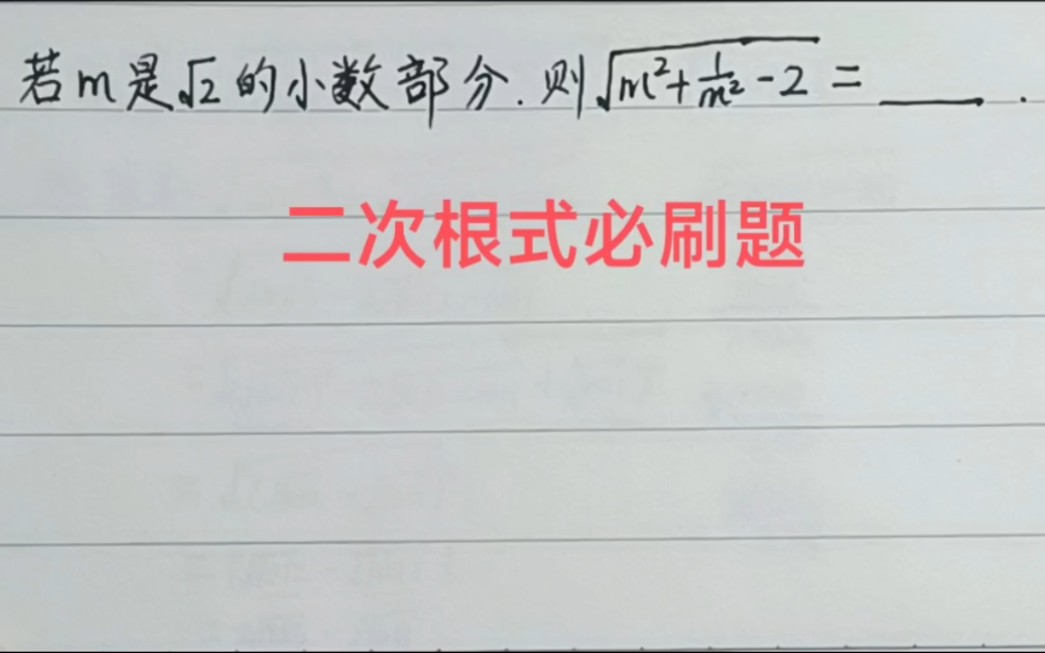 若m是√2的小数部分.则√(m²+1/m²-2)=____.
二次根式必刷题